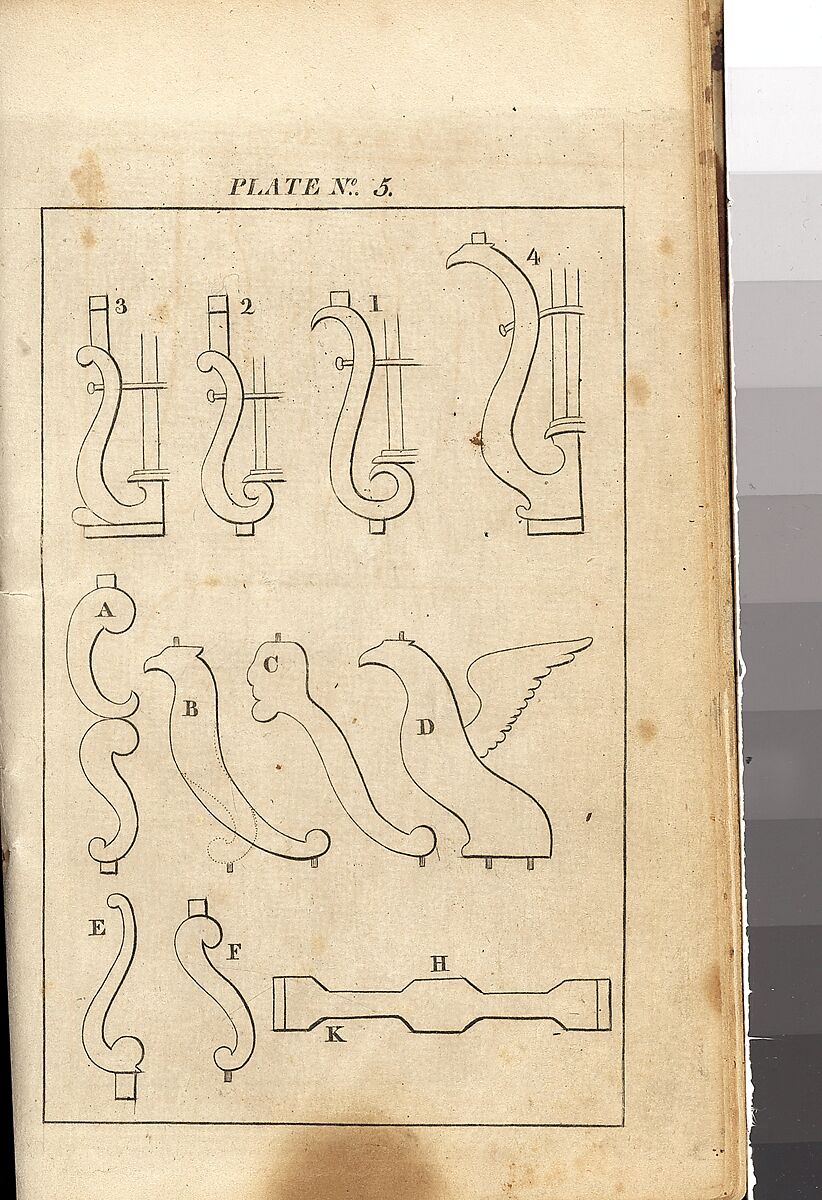 PLATE Nº. 5.
3 2 1 4
A
B C D
E F H
K